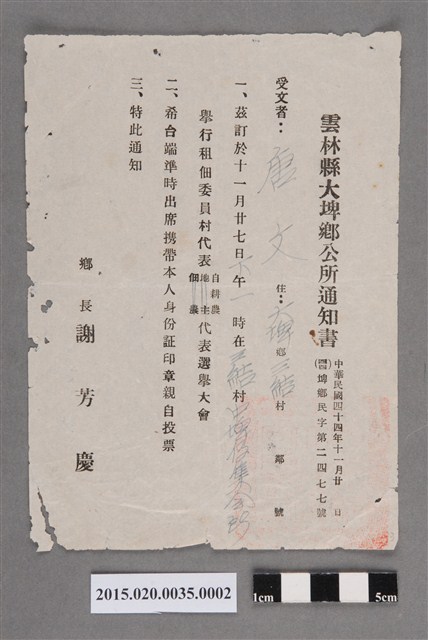 雲林縣大埤鄉公所通知書
中華民國四十四年十一月廿 日
埤鄉民字第二四七七號
受文者：唐文 住：大埤鄉三結村 鄰 號
一、茲訂於十一月廿七日下午一時在三結村
舉行租佃委員村代表自耕農地主佃農代表選舉大會
二、希台端準時出席携帶本人身份証印章親自投票
三、特此通知
鄉長 謝芳慶
2015.020.0035.0002
1cm 5cm